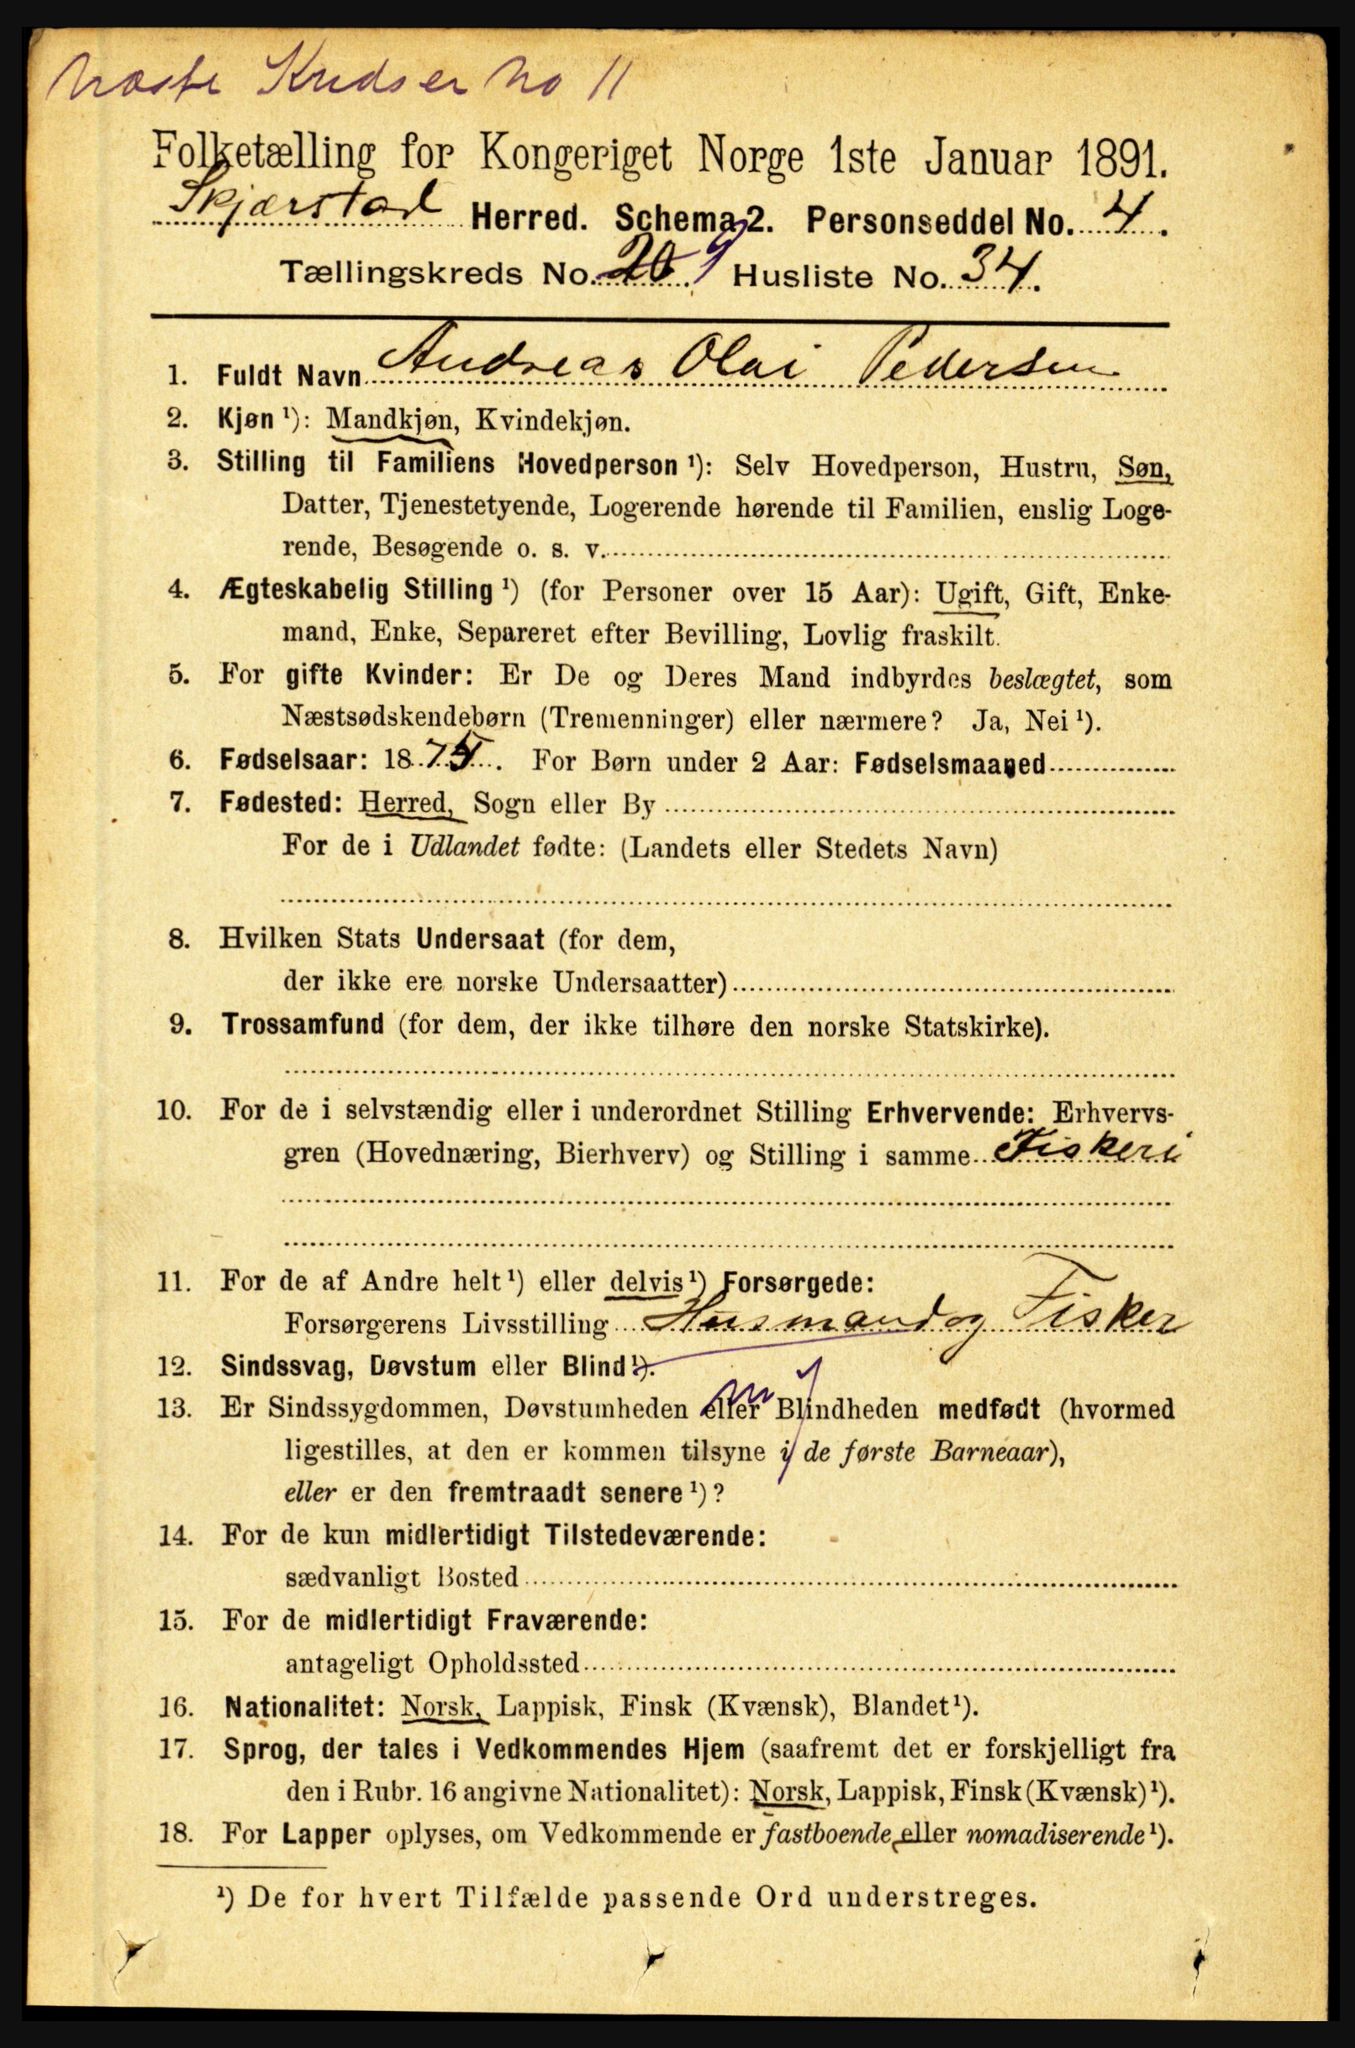 Næste Kredser No 11
Folketælling for Kongeriget Norge 1ste Januar 1891.
Skjærstad Herred. Schema 2. Personseddel No. 4.
Tællingskreds No. 20 9 Husliste No. 34.
1. Fuldt Navn Andreas Olai Pedersen
2. Kjøn ¹): Mandkjøn, Kvindekjøn.
3. Stilling til Familiens Hovedperson ¹): Selv Hovedperson, Hustru, Søn,
Datter, Tjenestetyende, Logerende hørende til Familien, enslig Loge-
rende, Besøgende o. s. v.
4. Ægteskabelig Stilling ¹) (for Personer over 15 Aar): Ugift, Gift, Enke-
mand, Enke, Separeret efter Bevilling, Lovlig fraskilt.
5. For gifte Kvinder: Er De og Deres Mand indbyrdes beslægtet, som
Næstsødskendebørn (Tremenninger) eller nærmere? Ja, Nei ¹).
6. Fødselsaar: 1875. For Børn under 2 Aar: Fødselsmaaned
7. Fødested: Herred, Sogn eller By
For de i Udlandet fødte: (Landets eller Stedets Navn)
8. Hvilken Stats Undersaat (for dem,
der ikke ere norske Undersaatter)
9. Trossamfund (for dem, der ikke tilhøre den norske Statskirke).
10. For de i selvstændig eller i underordnet Stilling Erhvervende: Erhvervs-
gren (Hovednæring, Bierhverv) og Stilling i samme Fiskeri
11. For de af Andre helt ¹) eller delvis ¹) Forsørgede:
Forsørgerens Livsstilling Husmand og Fisker
12. Sindssvag, Døvstum eller Blind ¹).
13. Er Sindssygdommen, Døvstumheden eller Blindheden medfødt (hvormed
ligestilles, at den er kommen tilsyne i de første Barneaar),
eller er den fremtraadt senere ¹)?
14. For de kun midlertidigt Tilstedeværende:
sædvanligt Bosted
15. For de midlertidigt Fraværende:
antageligt Opholdssted
16. Nationalitet: Norsk, Lappisk, Finsk (Kvænsk), Blandet ¹).
17. Sprog, der tales i Vedkommendes Hjem (saafremt det er forskjelligt fra
den i Rubr. 16 angivne Nationalitet): Norsk, Lappisk, Finsk (Kvænsk) ¹).
18. For Lapper oplyses, om Vedkommende er fastboende eller nomadiserende ¹).
¹) De for hvert Tilfælde passende Ord understreges.